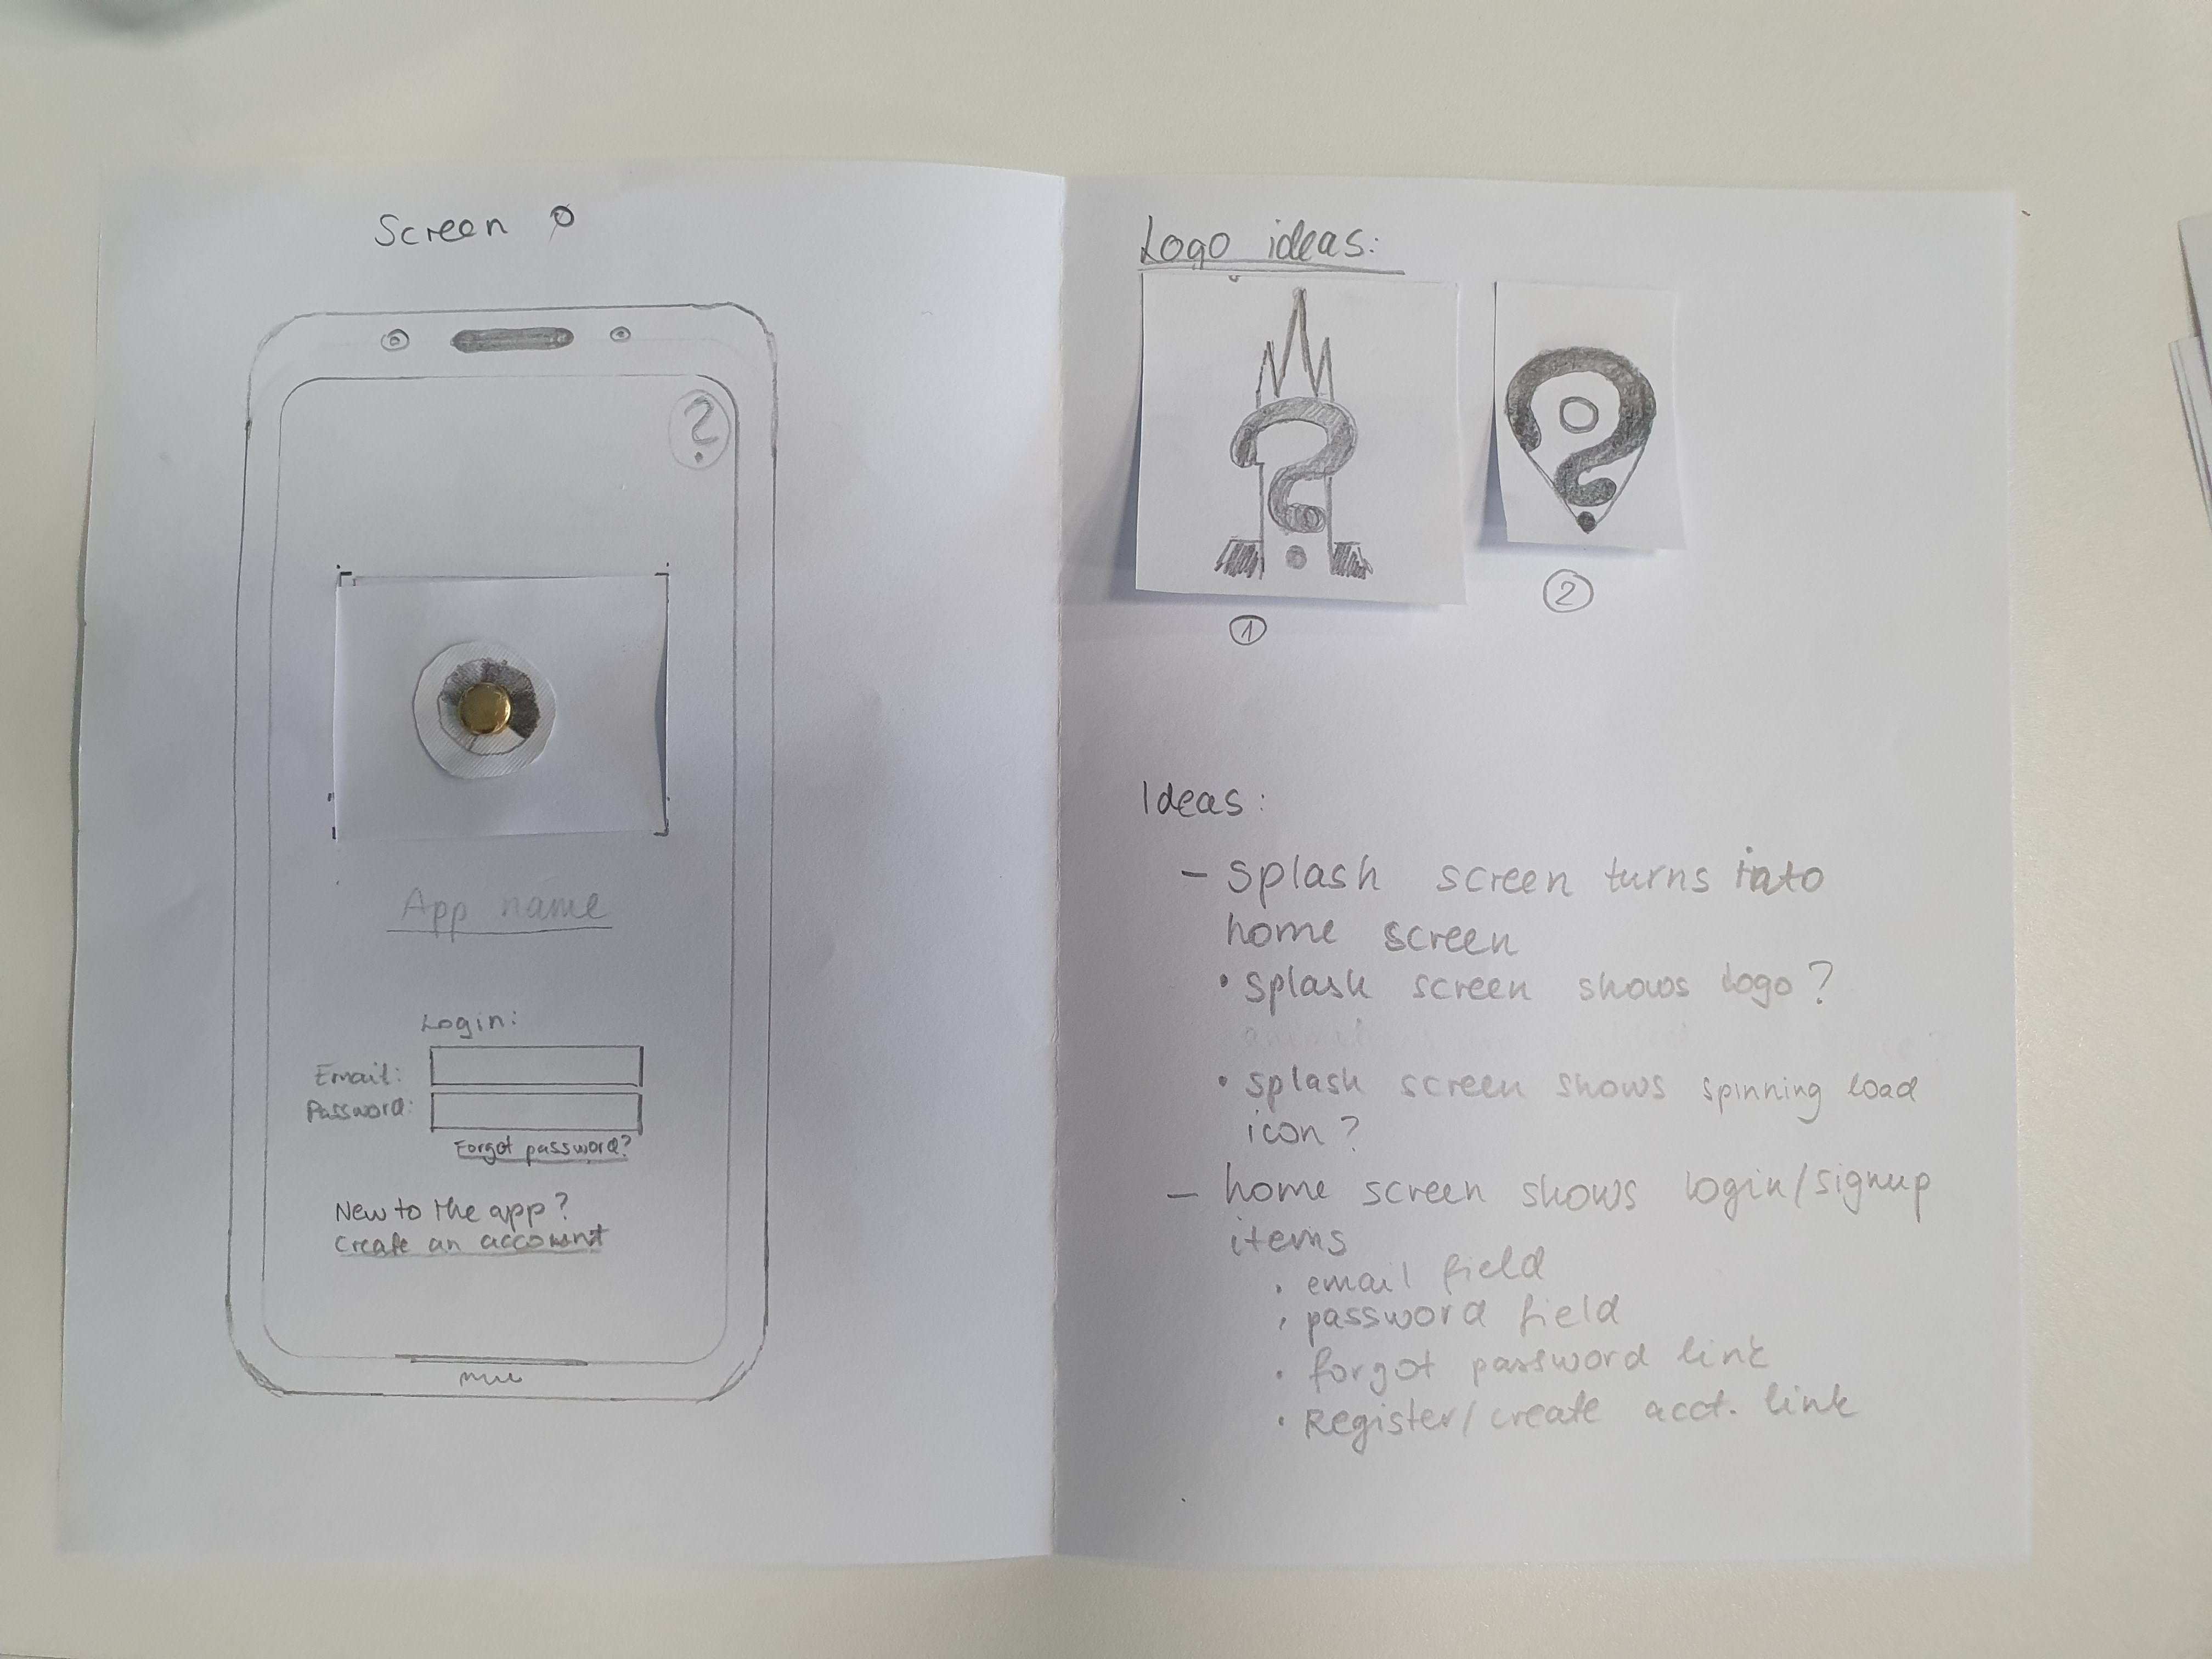 Screen 0
?
App name
Login:
Email:
Password:
Forgot password?
New to the app?
create an account
Logo ideas:
?
1
2
Ideas:
- Splash screen turns into
home screen
• Splash screen shows logo?
• Splash screen shows spinning load
icon?
- home screen shows login/signup
items
• email field
• password field
• forgot password link
• Register/create acct. link